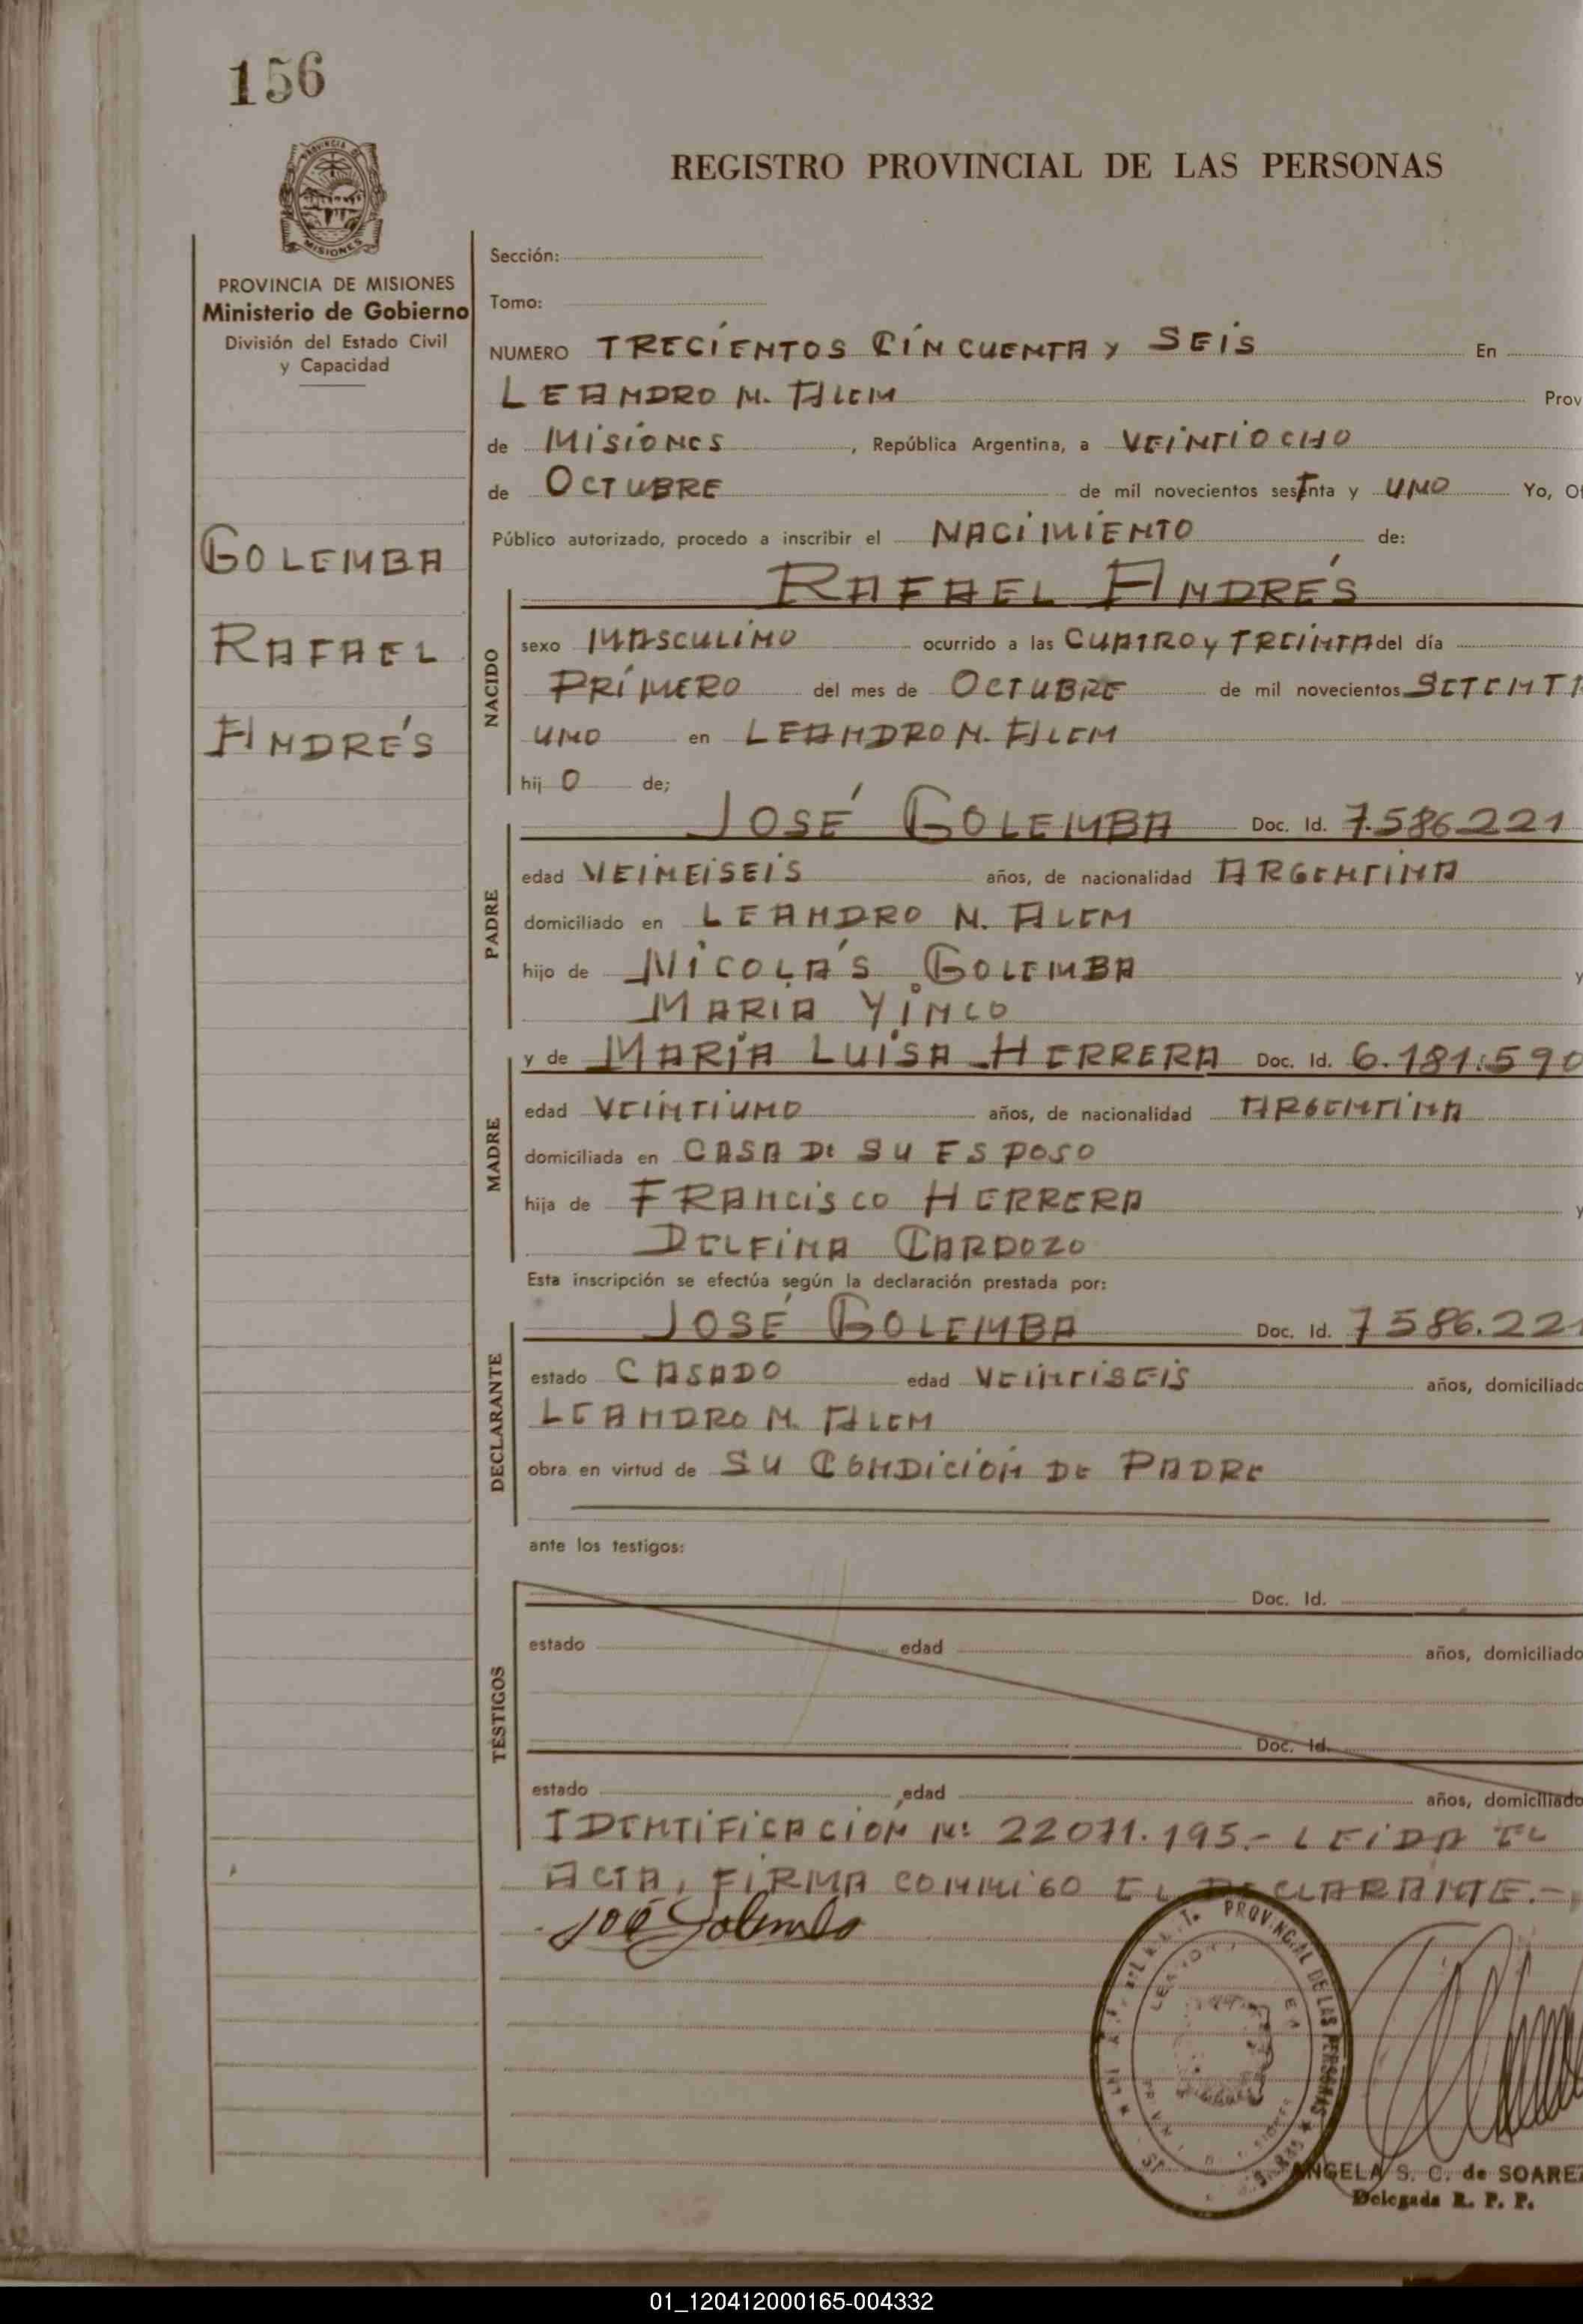 156
PROVINCIA DE
MISIONES
PROVINCIA DE MISIONES
Ministerio de Gobierno
División del Estado Civil
y Capacidad
GOLEMBA
RAFAEL
ANDRÉS
REGISTRO PROVINCIAL DE LAS PERSONAS
Sección:
Tomo:
NUMERO TRECIENTOS CINCUENTA y SEIS En
LEANDRO N. ALEM Prov
de MISIONES , República Argentina, a VEINTIOCHO
de OCTUBRE de mil novecientos sesTnta y UNO Yo, Of
Público autorizado, procedo a inscribir el NACIMIENTO de:
RAFAEL ANDRÉS
NACIDO
sexo MASCULINO ocurrido a las CUATRO y TREINTA del día
PRIMERO del mes de OCTUBRE de mil novecientos SETENTA
UNO en LEANDRO N. ALEM
hij O de;
PADRE
JOSÉ GOLEMBA Doc. Id. 7.586.221
edad VEINEISEIS años, de nacionalidad ARGENTINA
domiciliado en LEANDRO N. ALEM
hijo de NICOLÁS GOLEMBA y
MARIA YINCO
MADRE
y de MARÍA LUISA HERRERA Doc. Id. 6.181.590
edad VEINTIUNO años, de nacionalidad ARGENTINA
domiciliada en CASA DE SU ESPOSO
hija de FRANCISCO HERRERA y
DELFINA CARDOZO
Esta inscripción se efectúa según la declaración prestada por:
DECLARANTE
JOSÉ GOLEMBA Doc. Id. 7586.221
estado CASADO edad VEINTISEIS años, domiciliado
LEANDRO N. ALEM
obra en virtud de SU CONDICIÓN DE PADRE
ante los testigos:
TESTIGOS
Doc. Id.
estado edad años, domiciliado
Doc. Id.
estado edad años, domiciliado
IDENTIFICACIÓN Nº 22071.195.- LEIDA EL
ACTA, FIRMA CONMIGO EL DECLARANTE.-
José Golemba
PROVINCIAL DE LAS PERSONAS
ANGELA S. C. de SOAREZ
Delegada R. P. P.
01_120412000165-004332